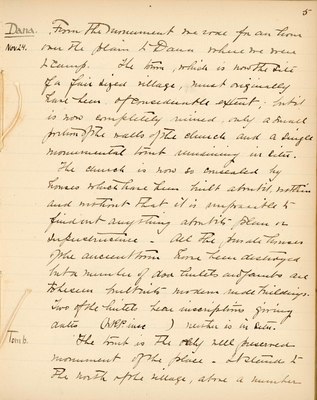 5
Dana.
Nov 24.
From the monument we rode for an hour
over the plain to Dana where we were
to camp. The town, which is now the site
of a fair sized village, must originally
have been of considerable extent; but it
is now completely ruined, only a small
portion of the walls of the church and a single
monumental tomb remaining in situ.
The church is now so concealed by
houses which have been built about it, within
and without that it is impossible to
find out anything about its plan or
superstructure. All the private houses
of the ancient town have been destroyed
but a number of door lintels and jambs are
to be seen built into modern rude buildings.
Two of the lintels bear inscriptions giving
dates ( ) neither is in situ.
Tomb.
The tomb is the only well preserved
monument of the place. It stands to
the north of the village, above a number